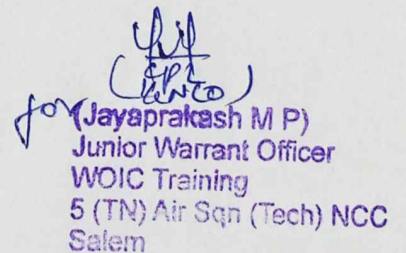 for (Jayaprakash M P)
Junior Warrant Officer
WOIC Training
5 (TN) Air Sqn (Tech) NCC
Salem